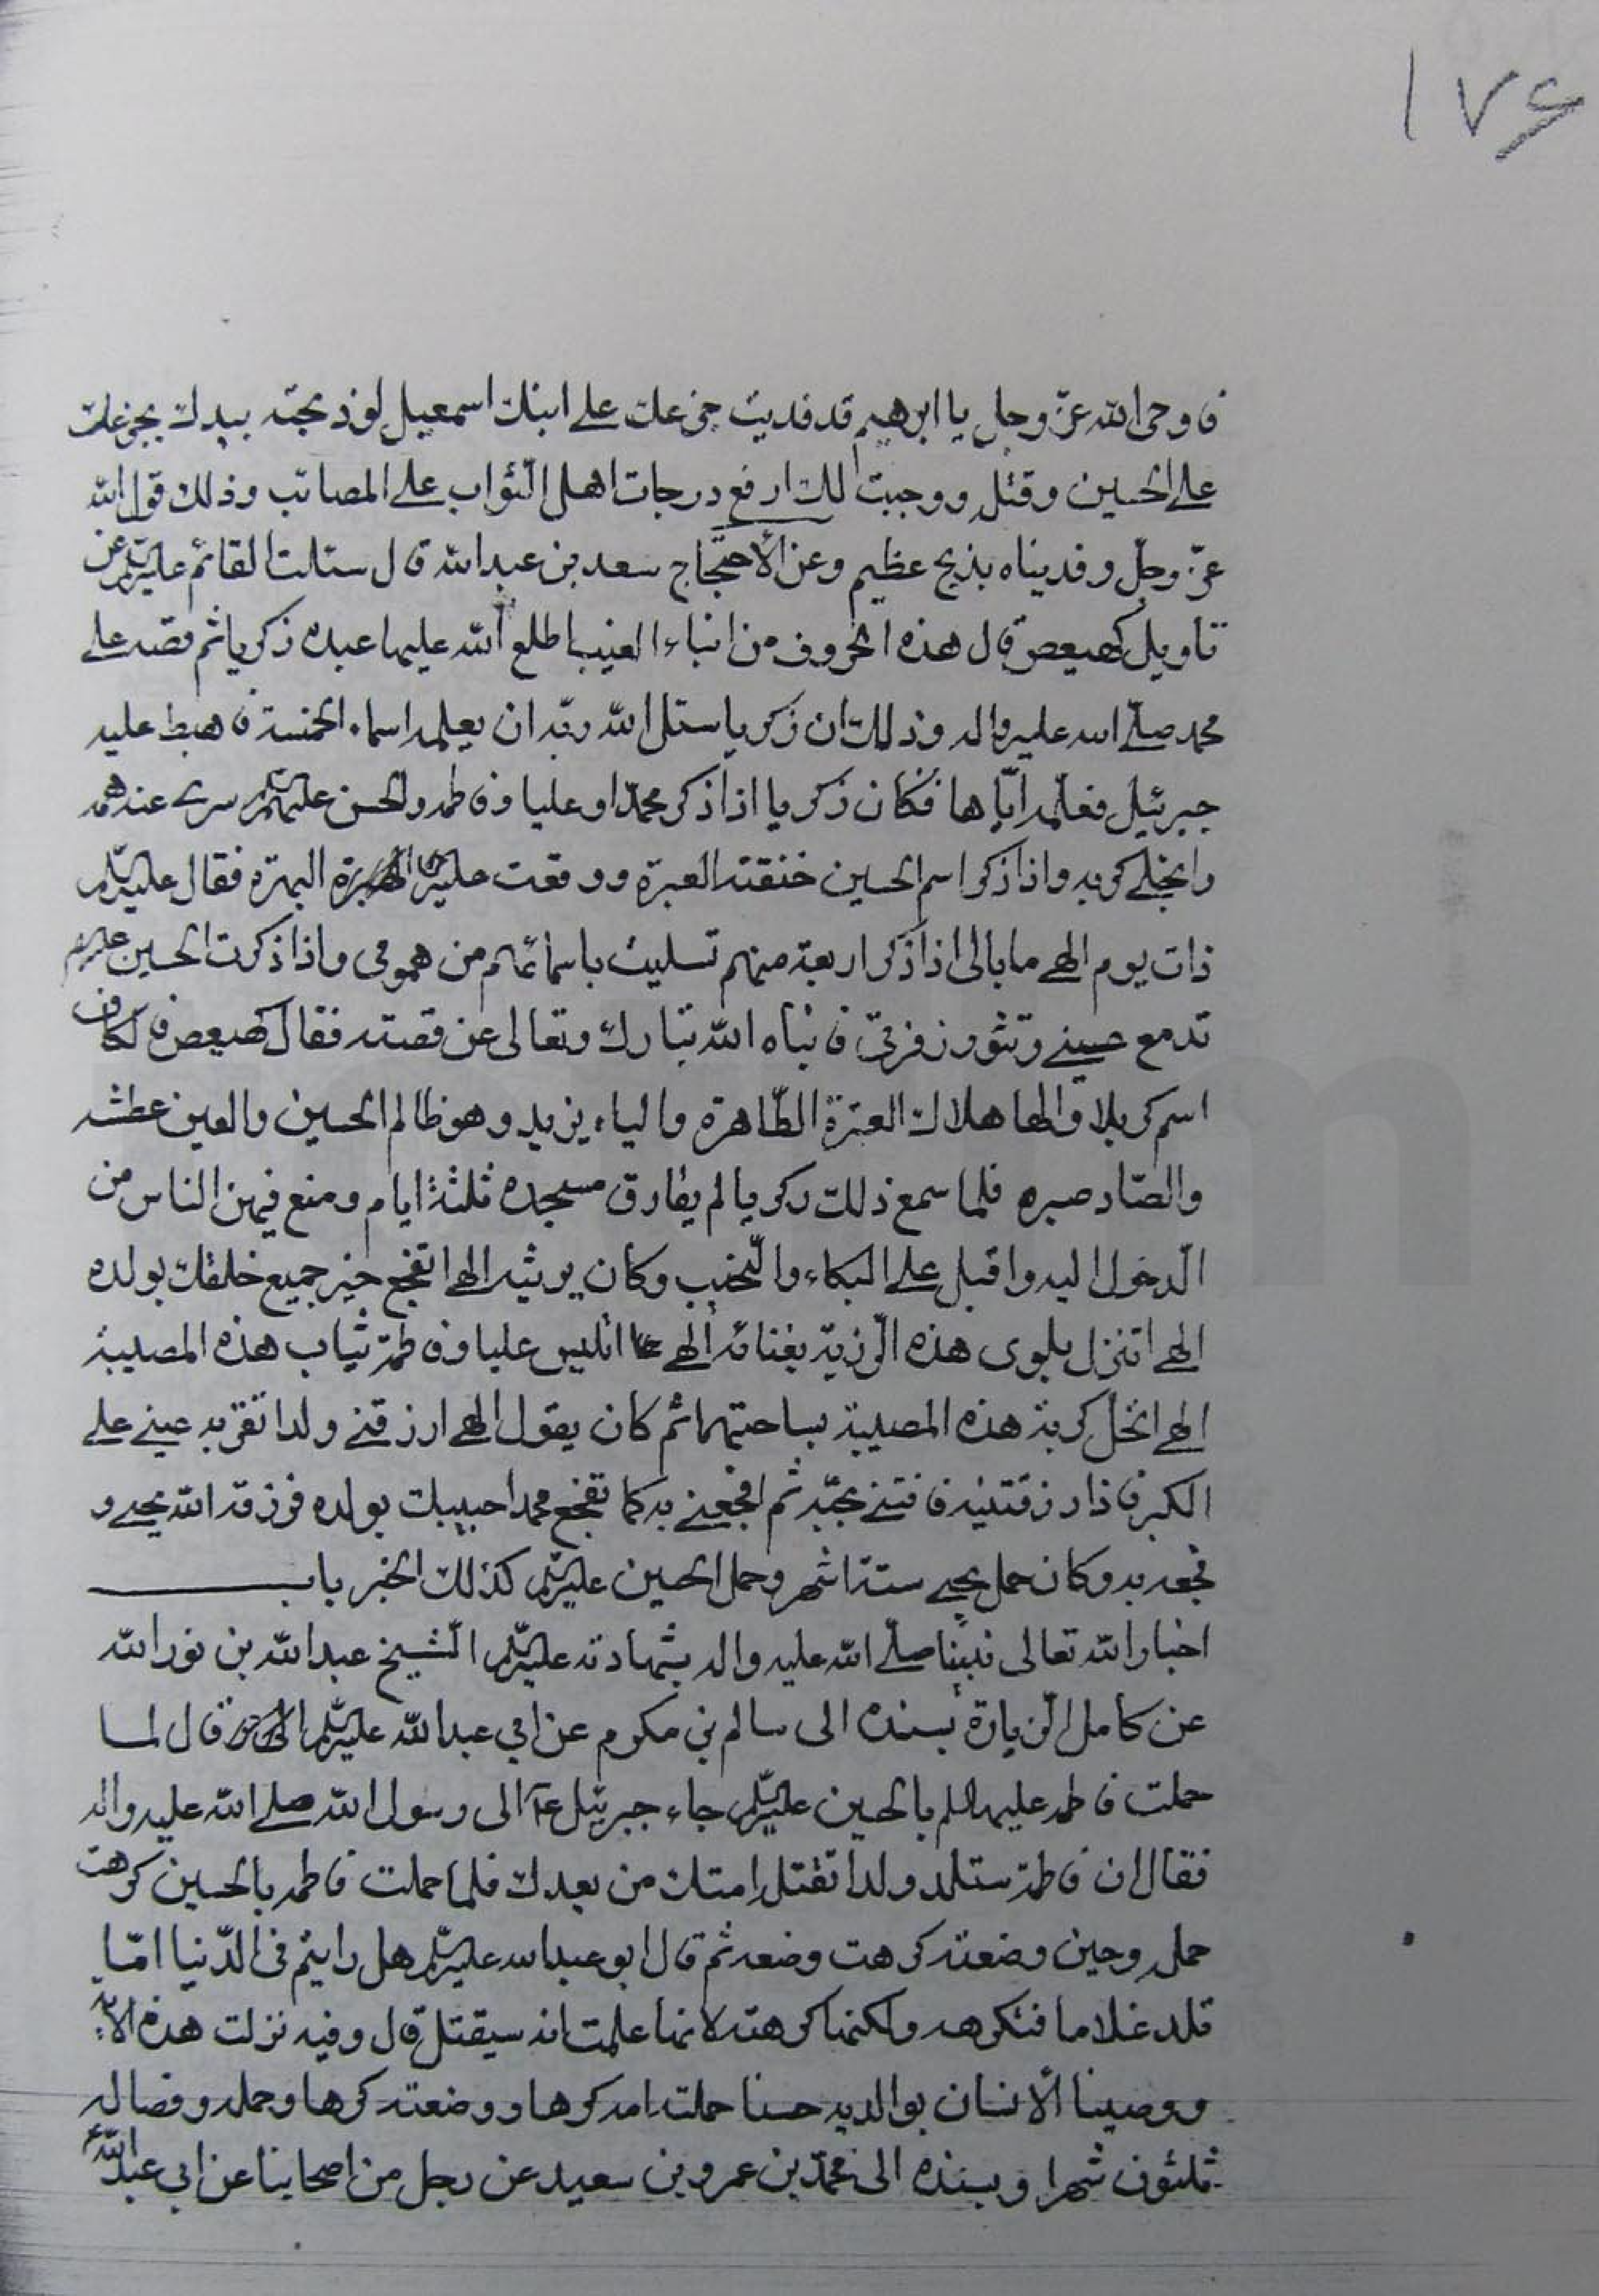 ۱۷۶
فاوحى الله عزّ وجل يا ابرهيم قد فديت جزعك على ابنك اسمعيل لو ذبحته بيدك بجزعك
على الحسين وقتله ووجبت لك ارفع درجات اهل الثّواب على المصائب وذلك قول الله
عزّ وجلّ وفديناه بذبح عظيم وعن الأحتجاج سعد بن عبد الله قال سئلت القائم عليه السّلم عن
تاويل كهيعص قال هذه الحروف من انباء الغيب اطلع الله عليها عبده زكريا ثم قصه على
محمد صلى الله عليه واله وذلك ان زكريا سئل الله ربّه ان يعلمه اسماء الخمسة فاهبط عليه
جبرئيل فعلّمه ايّاها فكان زكريا اذا ذكر محمّدا وعليا وفاطمه والحسن عليهم السّلم سرى عنه همه
وانجلى كربه واذا ذكر اسم الحسين خنقته العبرة ووقعت عليه البهرة فقال عليه السّلم
ذات يوم الهى ما بالى اذا ذكر اربعة منهم تسليت باسمائهم من همومى واذا ذكرت الحسين عليه السلم
تدمع عينى وتثور زفرتى فانباه الله تبارك وتعالى عن قصته فقال كهيعص فالكاف
اسم كربلا والها هلاك العترة الطّاهرة والياء يزيد وهو ظالم الحسين والعين عطشه
والصّاد صبره فلما سمع ذلك زكريا لم يفارق مسجده ثلثة ايام ومنع فيهن الناس من
الّدخول اليه واقبل على البكاء والنّحيب وكان يرثيه الهى اتفجع خير جميع خلقك بولده
الهى اتنزل بلوى هذه الّرزية بفنائه الهى اتلبس عليا وفاطمة ثياب هذه المصيبة
الهى اتحل كربة هذه المصيبة بساحتهما ثم كان يقول الهى ارزقنى ولدا تقرّ به عينى على
الكبر فاذا رزقتنيه فافتنى بحبّه ثم افجعنى به كما تفجع محمدا حبيبك بولده فرزقه الله يحيى و
فجعه به وكان حمل يحيى ستة اشهر وحمل الحسين عليه السّلم كذلك الخبر باب
اخبار الله تعالى نبيّنا صلّى الله عليه واله بشهادته عليه السّلم الّشيخ عبد الله بن نور الله
عن كامل الّزيارة بسنده الى سالم بن مكرم عن ابى عبد الله عليه السّلم قال لما
حملت فاطمه عليها السلم بالحسين عليه السّلم جاء جبرئيل ع الى رسول الله صلى الله عليه واله
فقال ان فاطمة ستلد ولدا تقتله امتك من بعدك فلما حملت فاطمه بالحسين كرهت
حمله وحين وضعته كرهت وضعه ثم قال ابو عبد الله عليه السّلم هل رايتم فى الدّنيا امّا
تلد غلاما فتكرهه ولكنها كرهته لانها علمت انه سيقتل قال وفيه نزلت هذه الاية
ووصينا الأنسان بوالديه حسنا حملته امه كرها ووضعته كرها وحمله وفصاله
ثلثون شهرا وبسنده الى محمّد بن عمرو بن سعيد عن رجل من اصحابنا عن ابى عبد الله ع